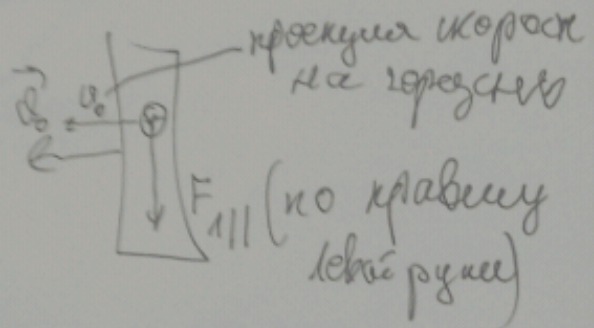 проекция скорост
на горизонт
v₀
v₀
F₁||
(по правилу
левой руки)